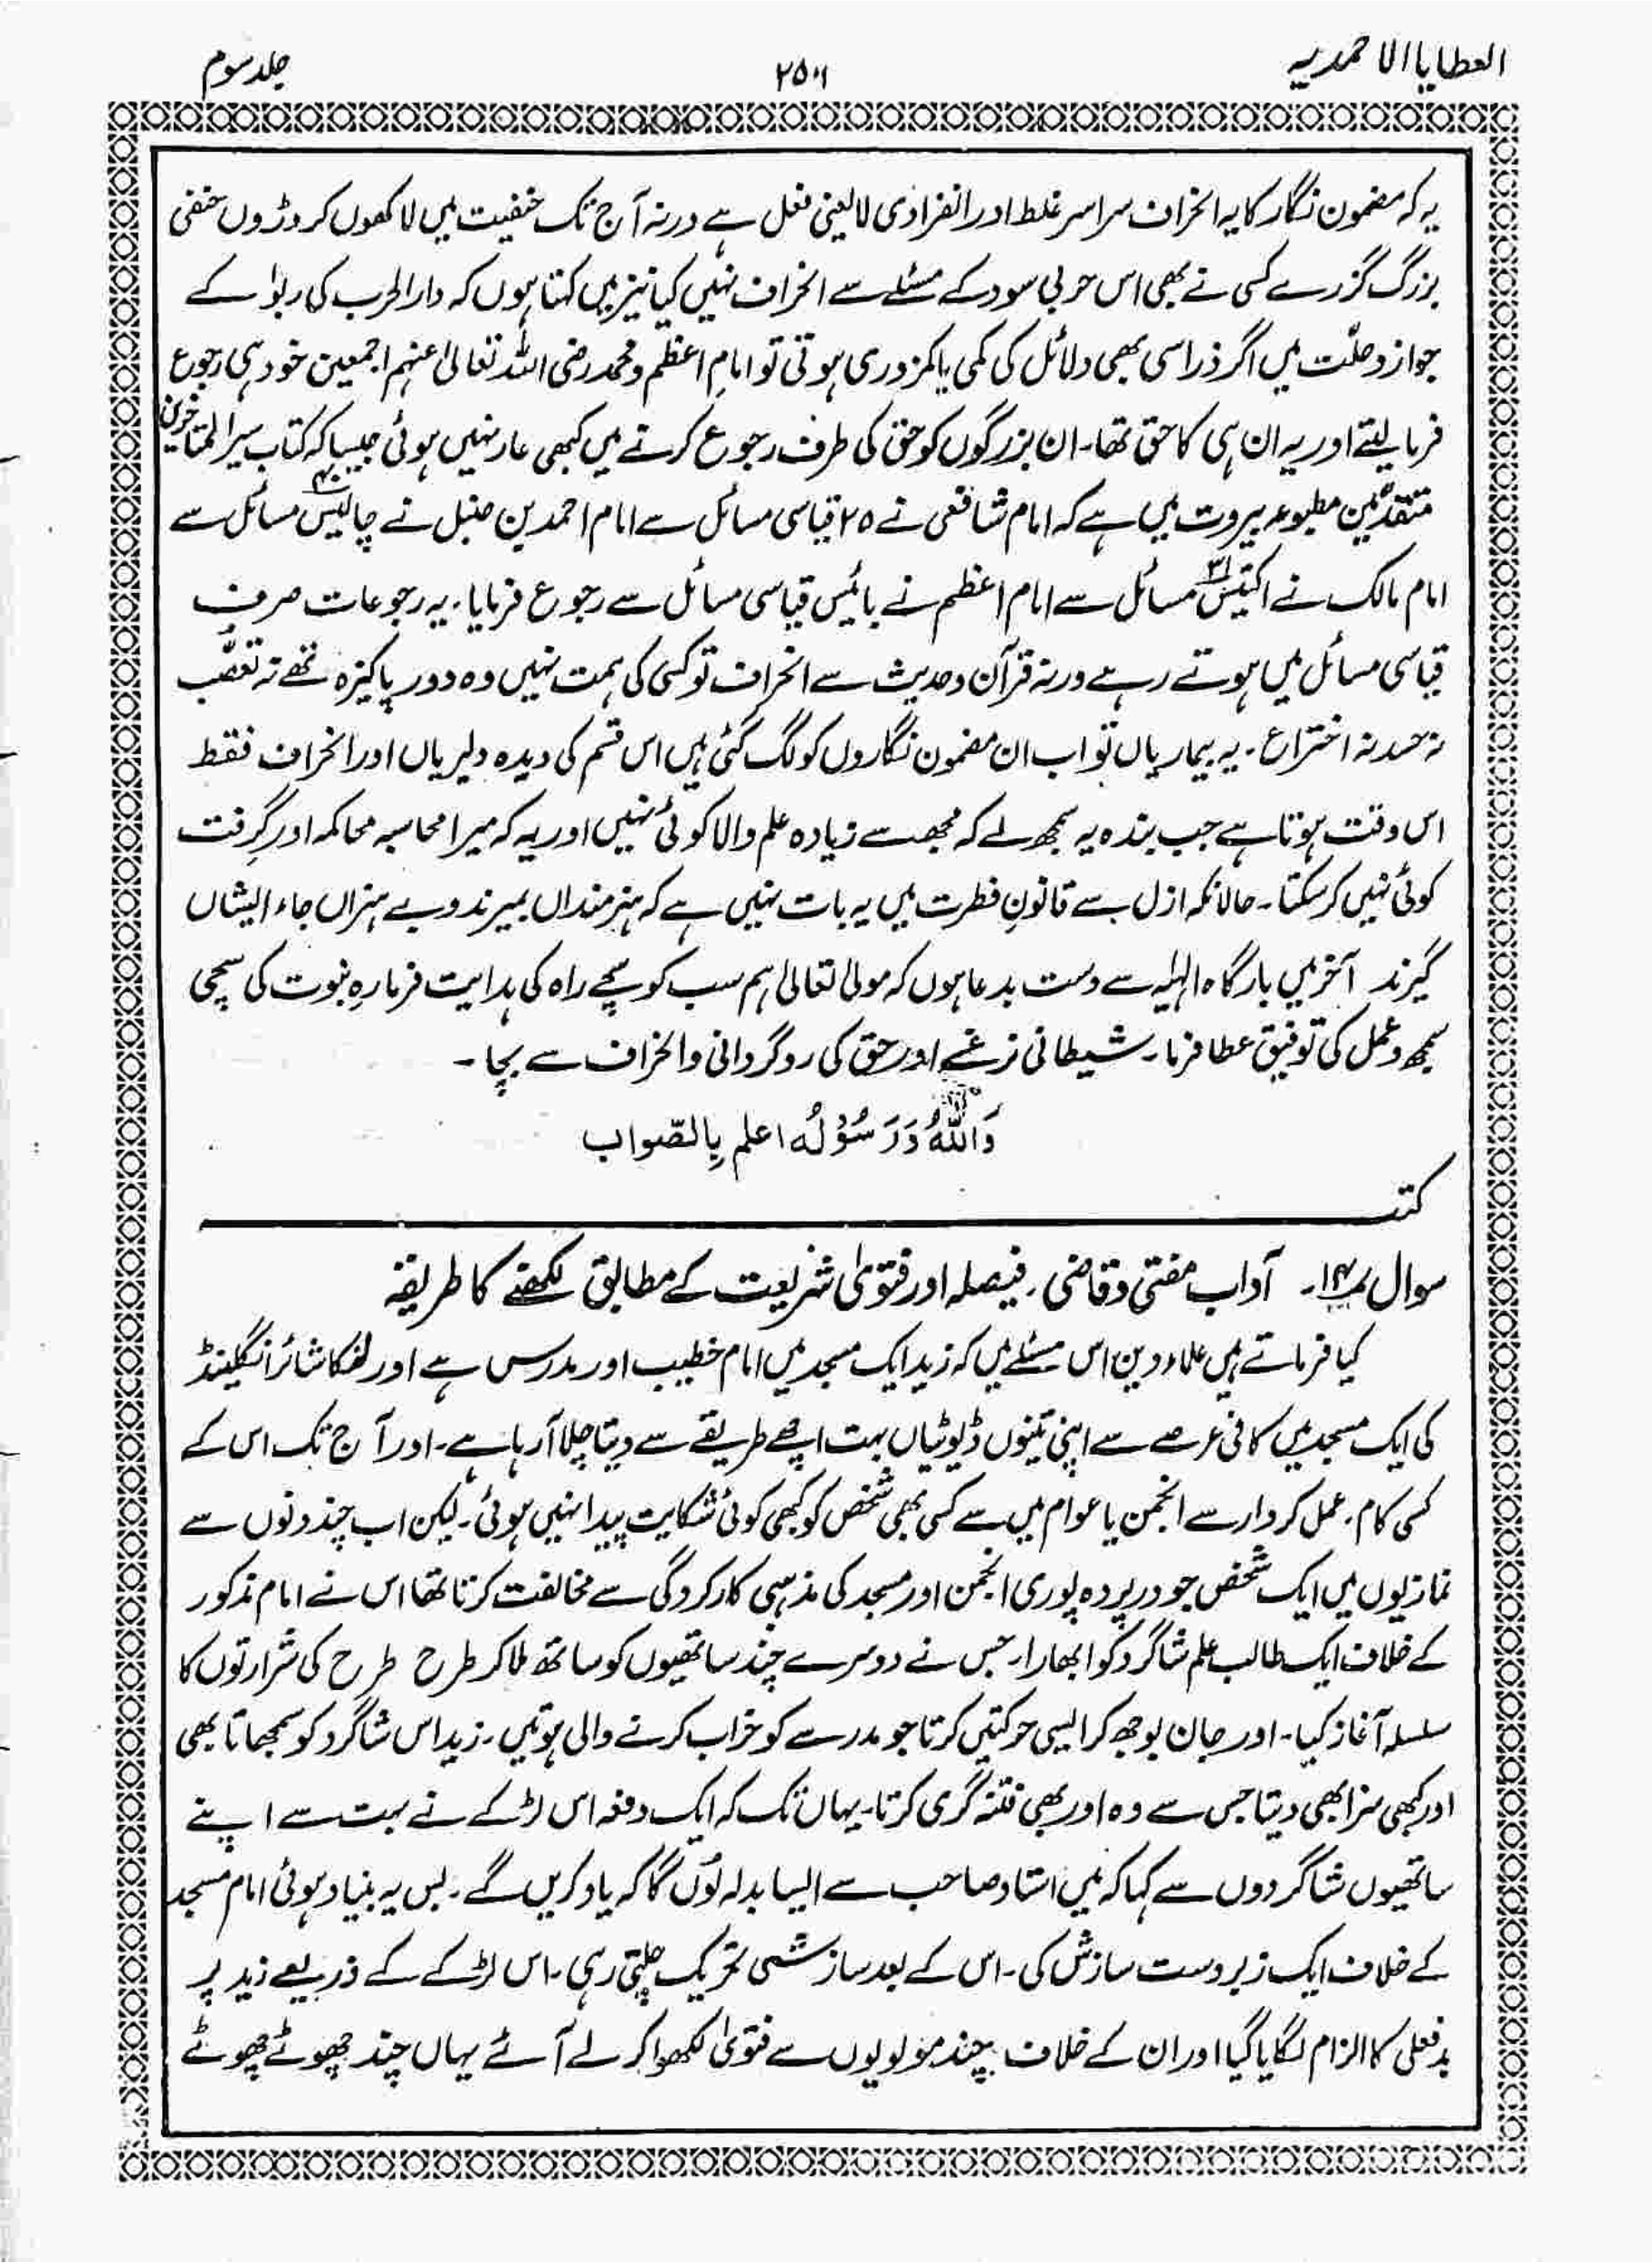 العطایا الاحمدیہ
۲۵۰۹
جلد سوم
یہ کہ مضمون نگار کا یہ انحراف سراسر غلط اور انفرادی لایعنی فعل ہے ورنہ آج تک حنفیت میں لاکھوں کروڑوں حنفی
بزرگ گزرے کسی نے بھی اس حربی سود کے مسئلے سے انحراف نہیں کیا نیز میں کہتا ہوں کہ دارالحرب کی ربوٰا کے
جواز و حلّت میں اگر ذرا سی بھی دلائل کی کمی یا کمزوری ہوتی تو امامِ اعظم و محمد رضی اللہ تعالیٰ عنہم اجمعین خود ہی رجوع
فرما لیتے اور یہ ان ہی کا حق تھا۔ ان بزرگوں کو حق کی طرف رجوع کرتے میں کبھی عار نہیں ہوئی جیسا کہ کتاب سیر المتاخرین
متقدّمین مطبوعہ بیروت میں ہے کہ امام شافعی نے ۲۵ قیاسی مسائل سے امام احمد بن حنبل نے چالیس ۴۰ مسائل سے
امام مالک نے اکتیس ۳۱ مسائل سے امام اعظم نے بائیس قیاسی مسائل سے رجوع فرمایا۔ یہ رجوعات صرف
قیاسی مسائل میں ہوتے رہے ورنہ قرآن و حدیث سے انحراف تو کسی کی ہمت نہیں وہ دور پاکیزہ تھے نہ تعصّب
نہ حسد نہ اختراع۔ یہ بیماریاں تو اب ان مضمون نگاروں کو لگ گئی ہیں اس قسم کی دیدہ دلیریاں اور انحراف فقط
اس وقت ہوتا ہے جب بندہ یہ سمجھ لے کہ مجھ سے زیادہ علم والا کوئی نہیں اور یہ کہ میرا محاسبہ محاکمہ اور گرفت
کوئی نہیں کر سکتا۔ حالانکہ ازل سے قانونِ فطرت میں یہ بات نہیں ہے کہ ہنرمنداں بمیرند و بے ہنراں جاء ایشاں
گیرند آخر میں بارگاہ الٰہیہ سے دست بدعا ہوں کہ مولیٰ تعالیٰ ہم سب کو سچے راہ کی ہدایت فرما رہِ نبوت کی سچی
سمجھ و عمل کی توفیق عطا فرما۔ شیطانی نرغے اور حق کی روگردانی و انحراف سے بچا۔
وَاللّٰهُ وَرَسُوْلُهٗ اعلم بِالصّواب
کتبہ
سوال نمبر ۱۴۔ آداب مفتی و قاضی، فیصلہ اور فتوٰی شریعت کے مطابق لکھنے کا طریقہ
کیا فرماتے ہیں علماءِ دین اس مسئلے میں کہ زید ایک مسجد میں امام خطیب اور مدرس ہے اور لنکا شائر انگلینڈ
کی ایک مسجد میں کافی عرصے سے اپنی تینوں ڈیوٹیاں بہت اچھے طریقے سے دیتا چلا آ رہا ہے۔ اور آج تک اس کے
کسی کام، عمل کردار سے انجمن یا عوام میں سے کسی بھی شخص کو کبھی کوئی شکایت پیدا نہیں ہوئی۔ لیکن اب چند دنوں سے
نمازیوں میں ایک شخص جو درپردہ پوری انجمن اور مسجد کی مذہبی کارکردگی سے مخالفت کرتا تھا اس نے امام مذکور
کے خلاف ایک طالب علم شاگرد کو ابھارا۔ جس نے دوسرے چند ساتھیوں کو ساتھ ملا کر طرح طرح کی شرارتوں کا
سلسلہ آغاز کیا۔ اور جان بوجھ کر ایسی حرکتیں کرتا جو مدرسے کو خراب کرنے والی ہوتیں۔ زید اس شاگرد کو سمجھاتا بھی
اور کبھی سزا بھی دیتا جس سے وہ اور بھی فتنہ گری کرتا۔ یہاں تک کہ ایک دفعہ اس لڑکے نے بہت سے اپنے
ساتھیوں شاگردوں سے کہا کہ میں استاد صاحب سے ایسا بدلہ لوں گا کہ یاد کریں گے۔ بس یہ بنیاد ہوئی امام مسجد
کے خلاف ایک زبردست سازش کی۔ اس کے بعد سازشی تحریک چلتی رہی۔ اس لڑکے کے ذریعے زید پر
بدفعلی کا الزام لگایا گیا اور ان کے خلاف چند مولویوں سے فتوٰی لکھوا کر لے آئے یہاں چند چھوٹے چھوٹے